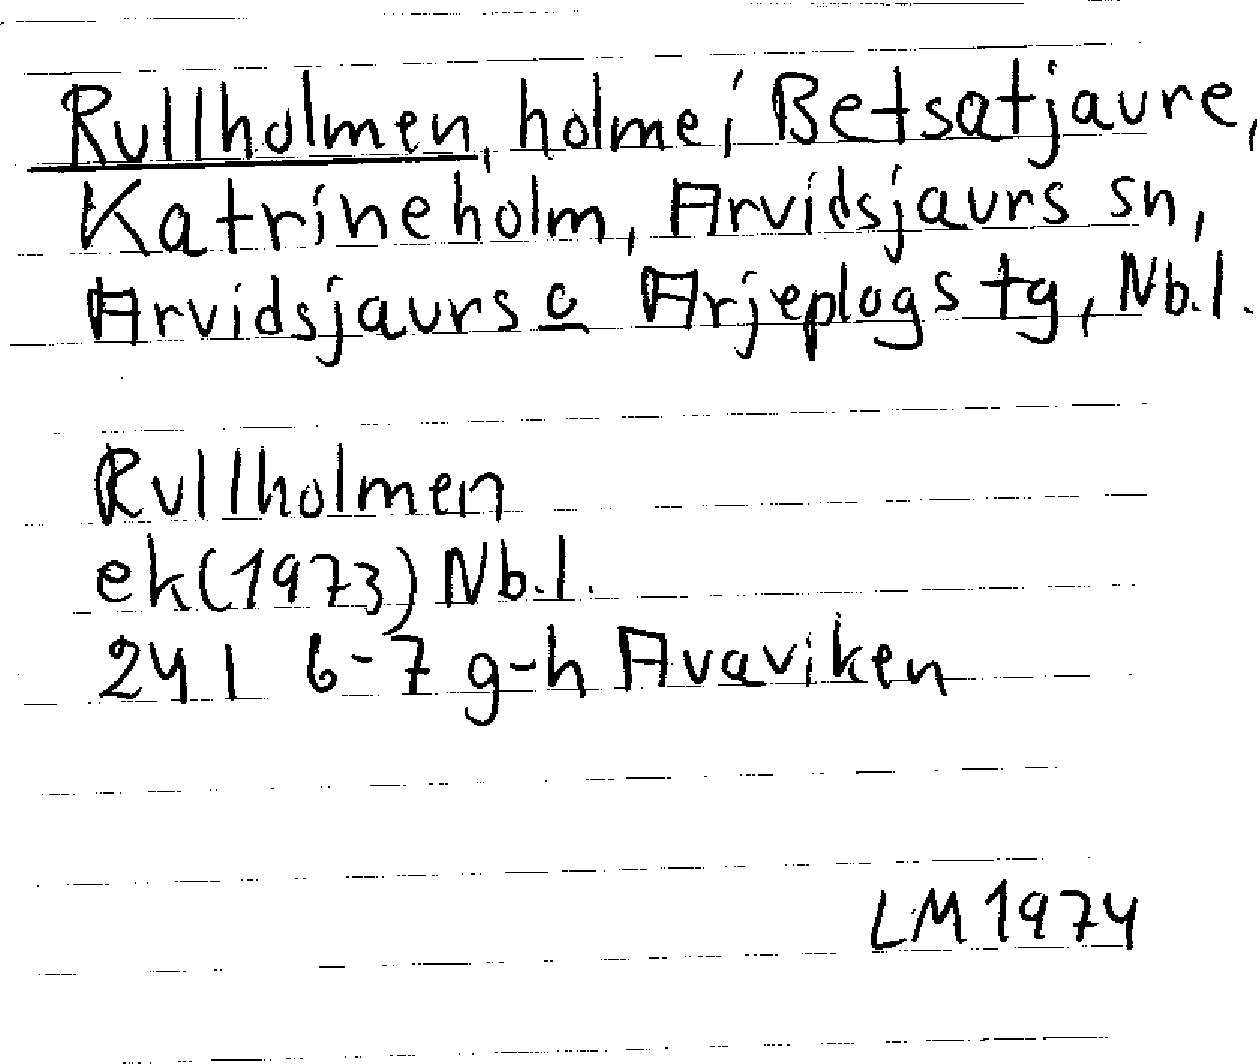 Rullholmen, holme i Betsatjaure,
Katrineholm, Arvidsjaurs sn,
Arvidsjaurs o Arjeplogs tg, Nb.l.
Rullholmen
ek(1973) Nb.l.
24 I 6-7 g-h Avaviken
LM 1974